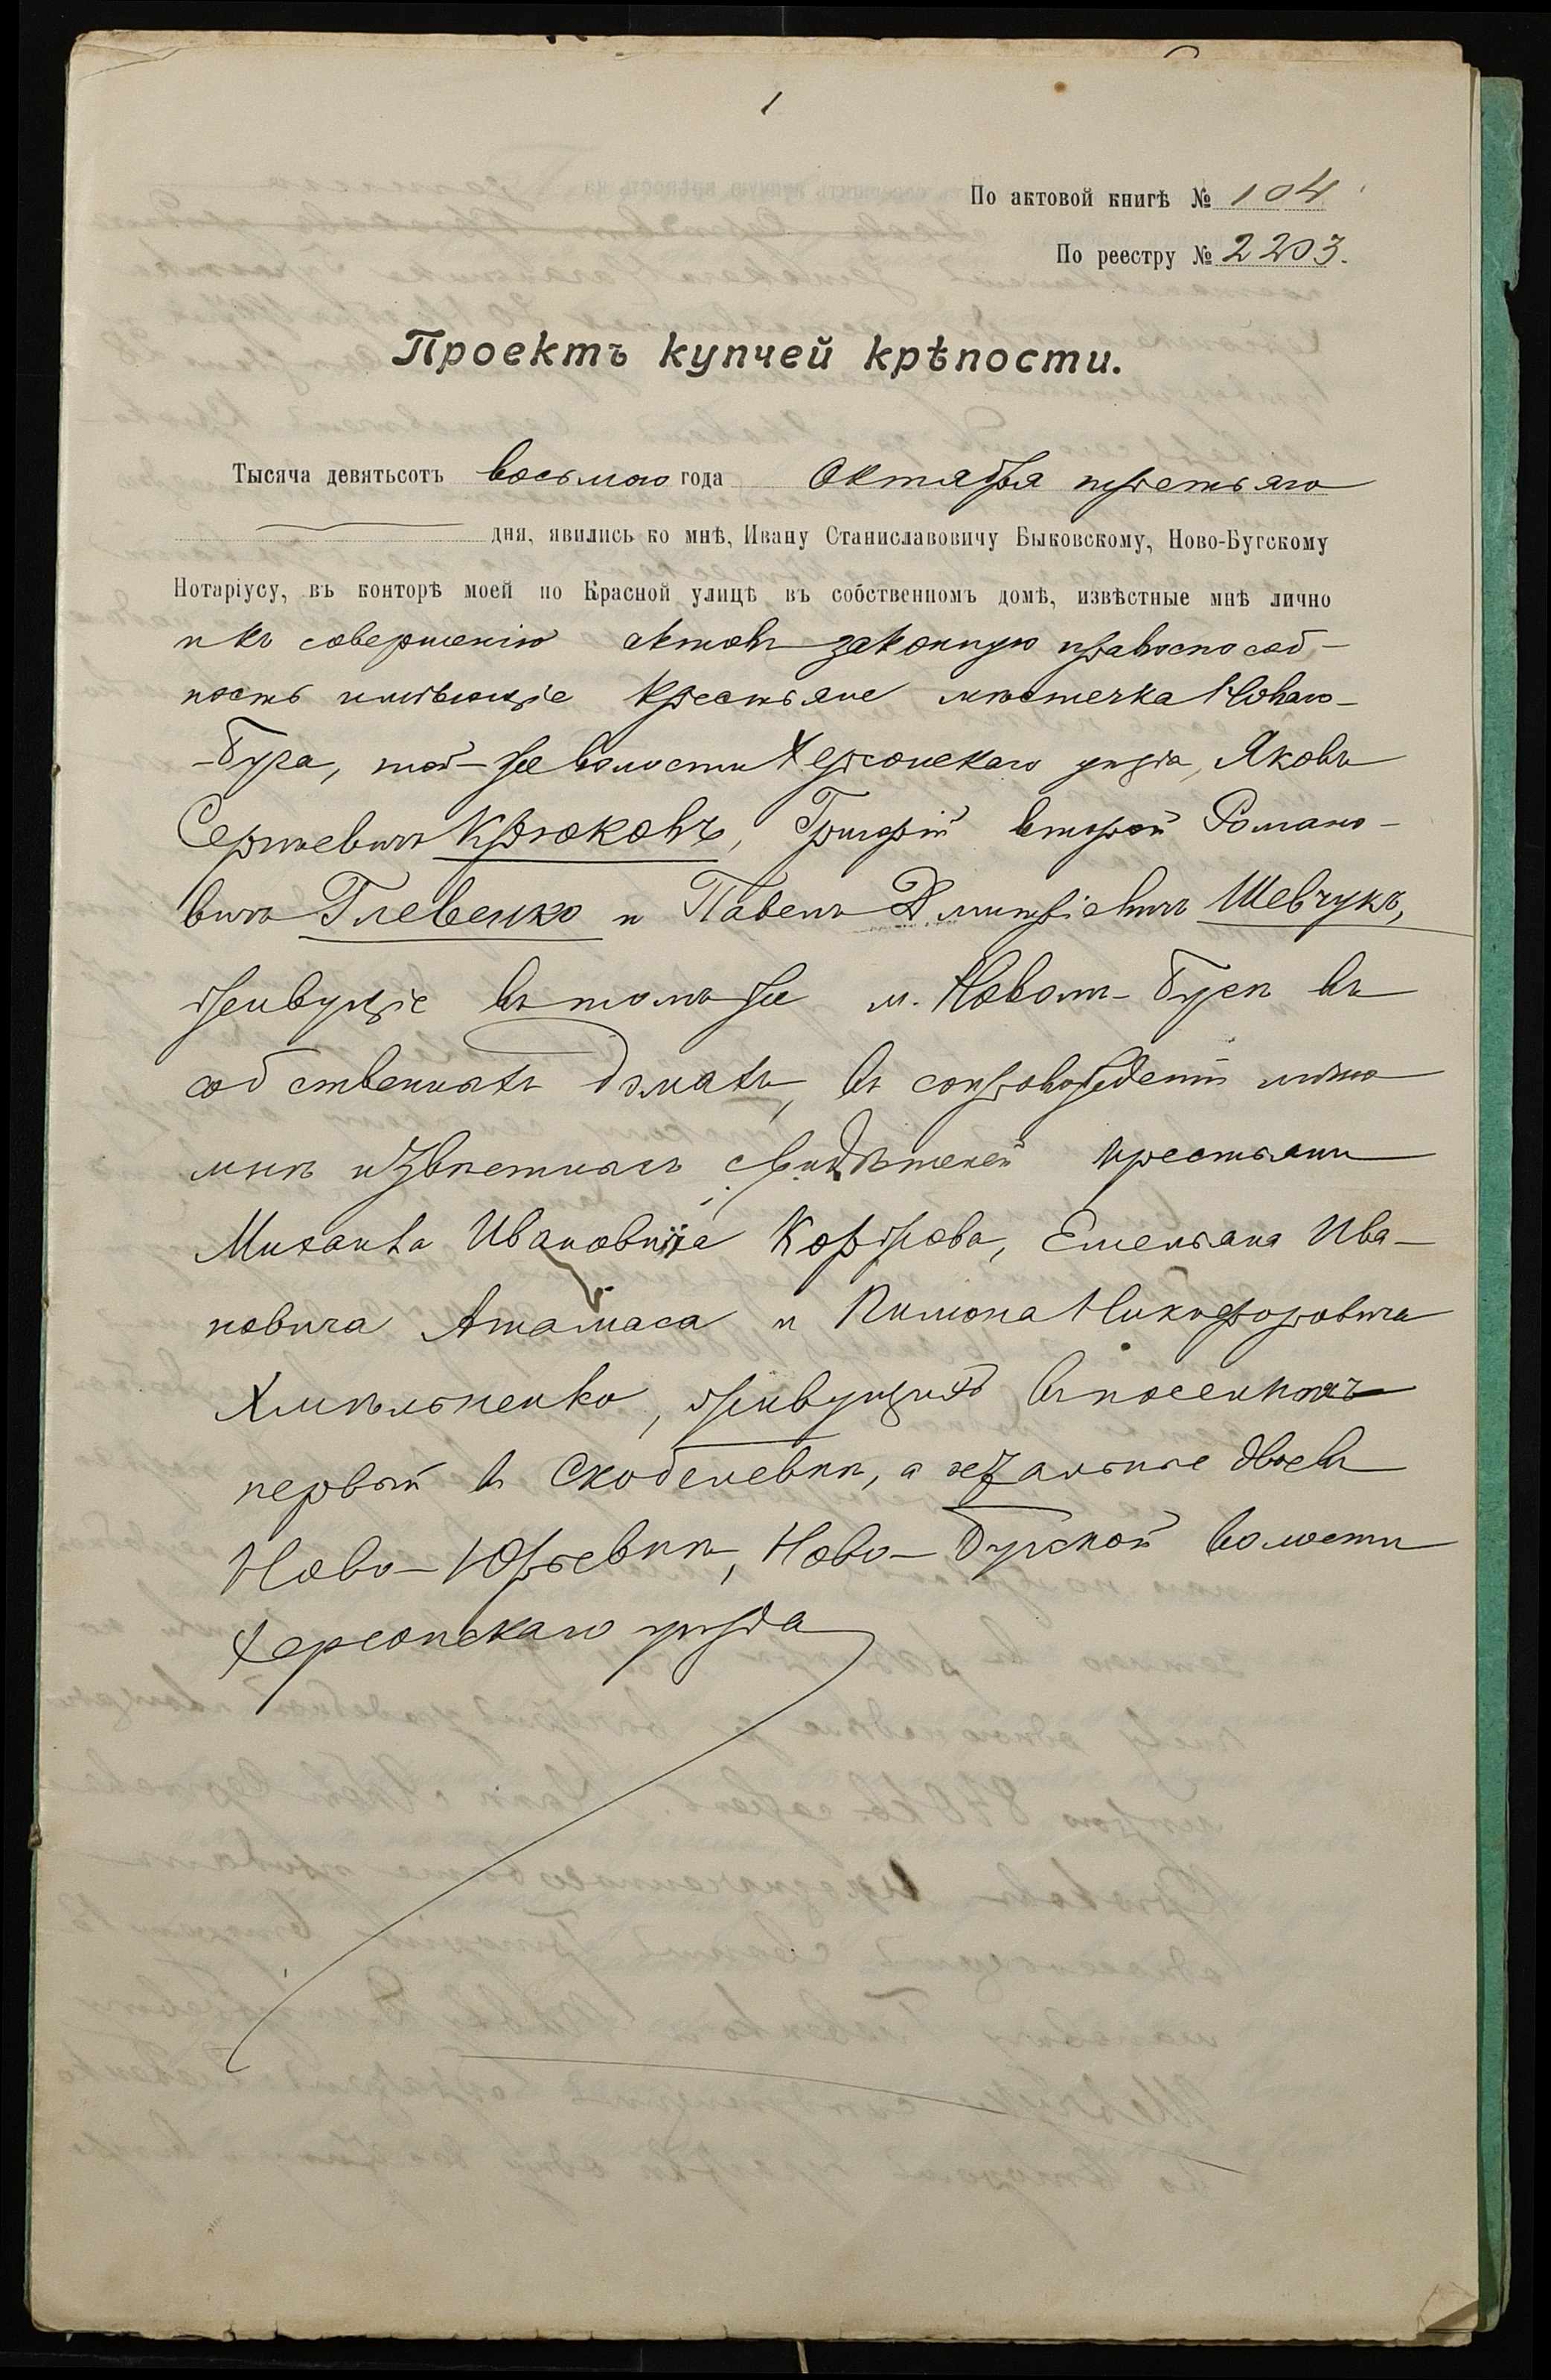 1
По актовой книгѣ № 104
По реестру № 2203.
Проектъ купчей крѣпости.
Тысяча девятьсотъ восьмого года Октября третьяго
дня, явились ко мнѣ, Ивану Станиславовичу Быковскому, Ново-Бугскому
Нотаріусу, въ конторѣ моей по Красной улицѣ въ собственномъ домѣ, извѣстные мнѣ лично
и къ совершенію актовъ законную правоспособ-
ность имѣющіе крестьяне мѣстечка Новаго-
-Буга, той-же волости Херсонскаго уѣзда, Яковъ
Сергѣевичъ Крюковъ, Григорій второй Романо-
вичъ Глевенко и Павелъ Дмитріевичъ Шевчукъ,
живущіе въ томъ же м. Новомъ-Бугѣ въ
собственныхъ домахъ, въ сопровожденіи лично
мнѣ извѣстныхъ свидѣтелей крестьянъ
Михаила Ивановича Коржова, Емельяна Ива-
новича Атамаса и Пимона Никифоровича
Хмѣльненко, живущихъ въ поселкахъ
первый въ Скобелевкѣ, а остальные двое въ
Ново-Юрьевкѣ, Ново-Бугской волости
Херсонскаго уѣзда